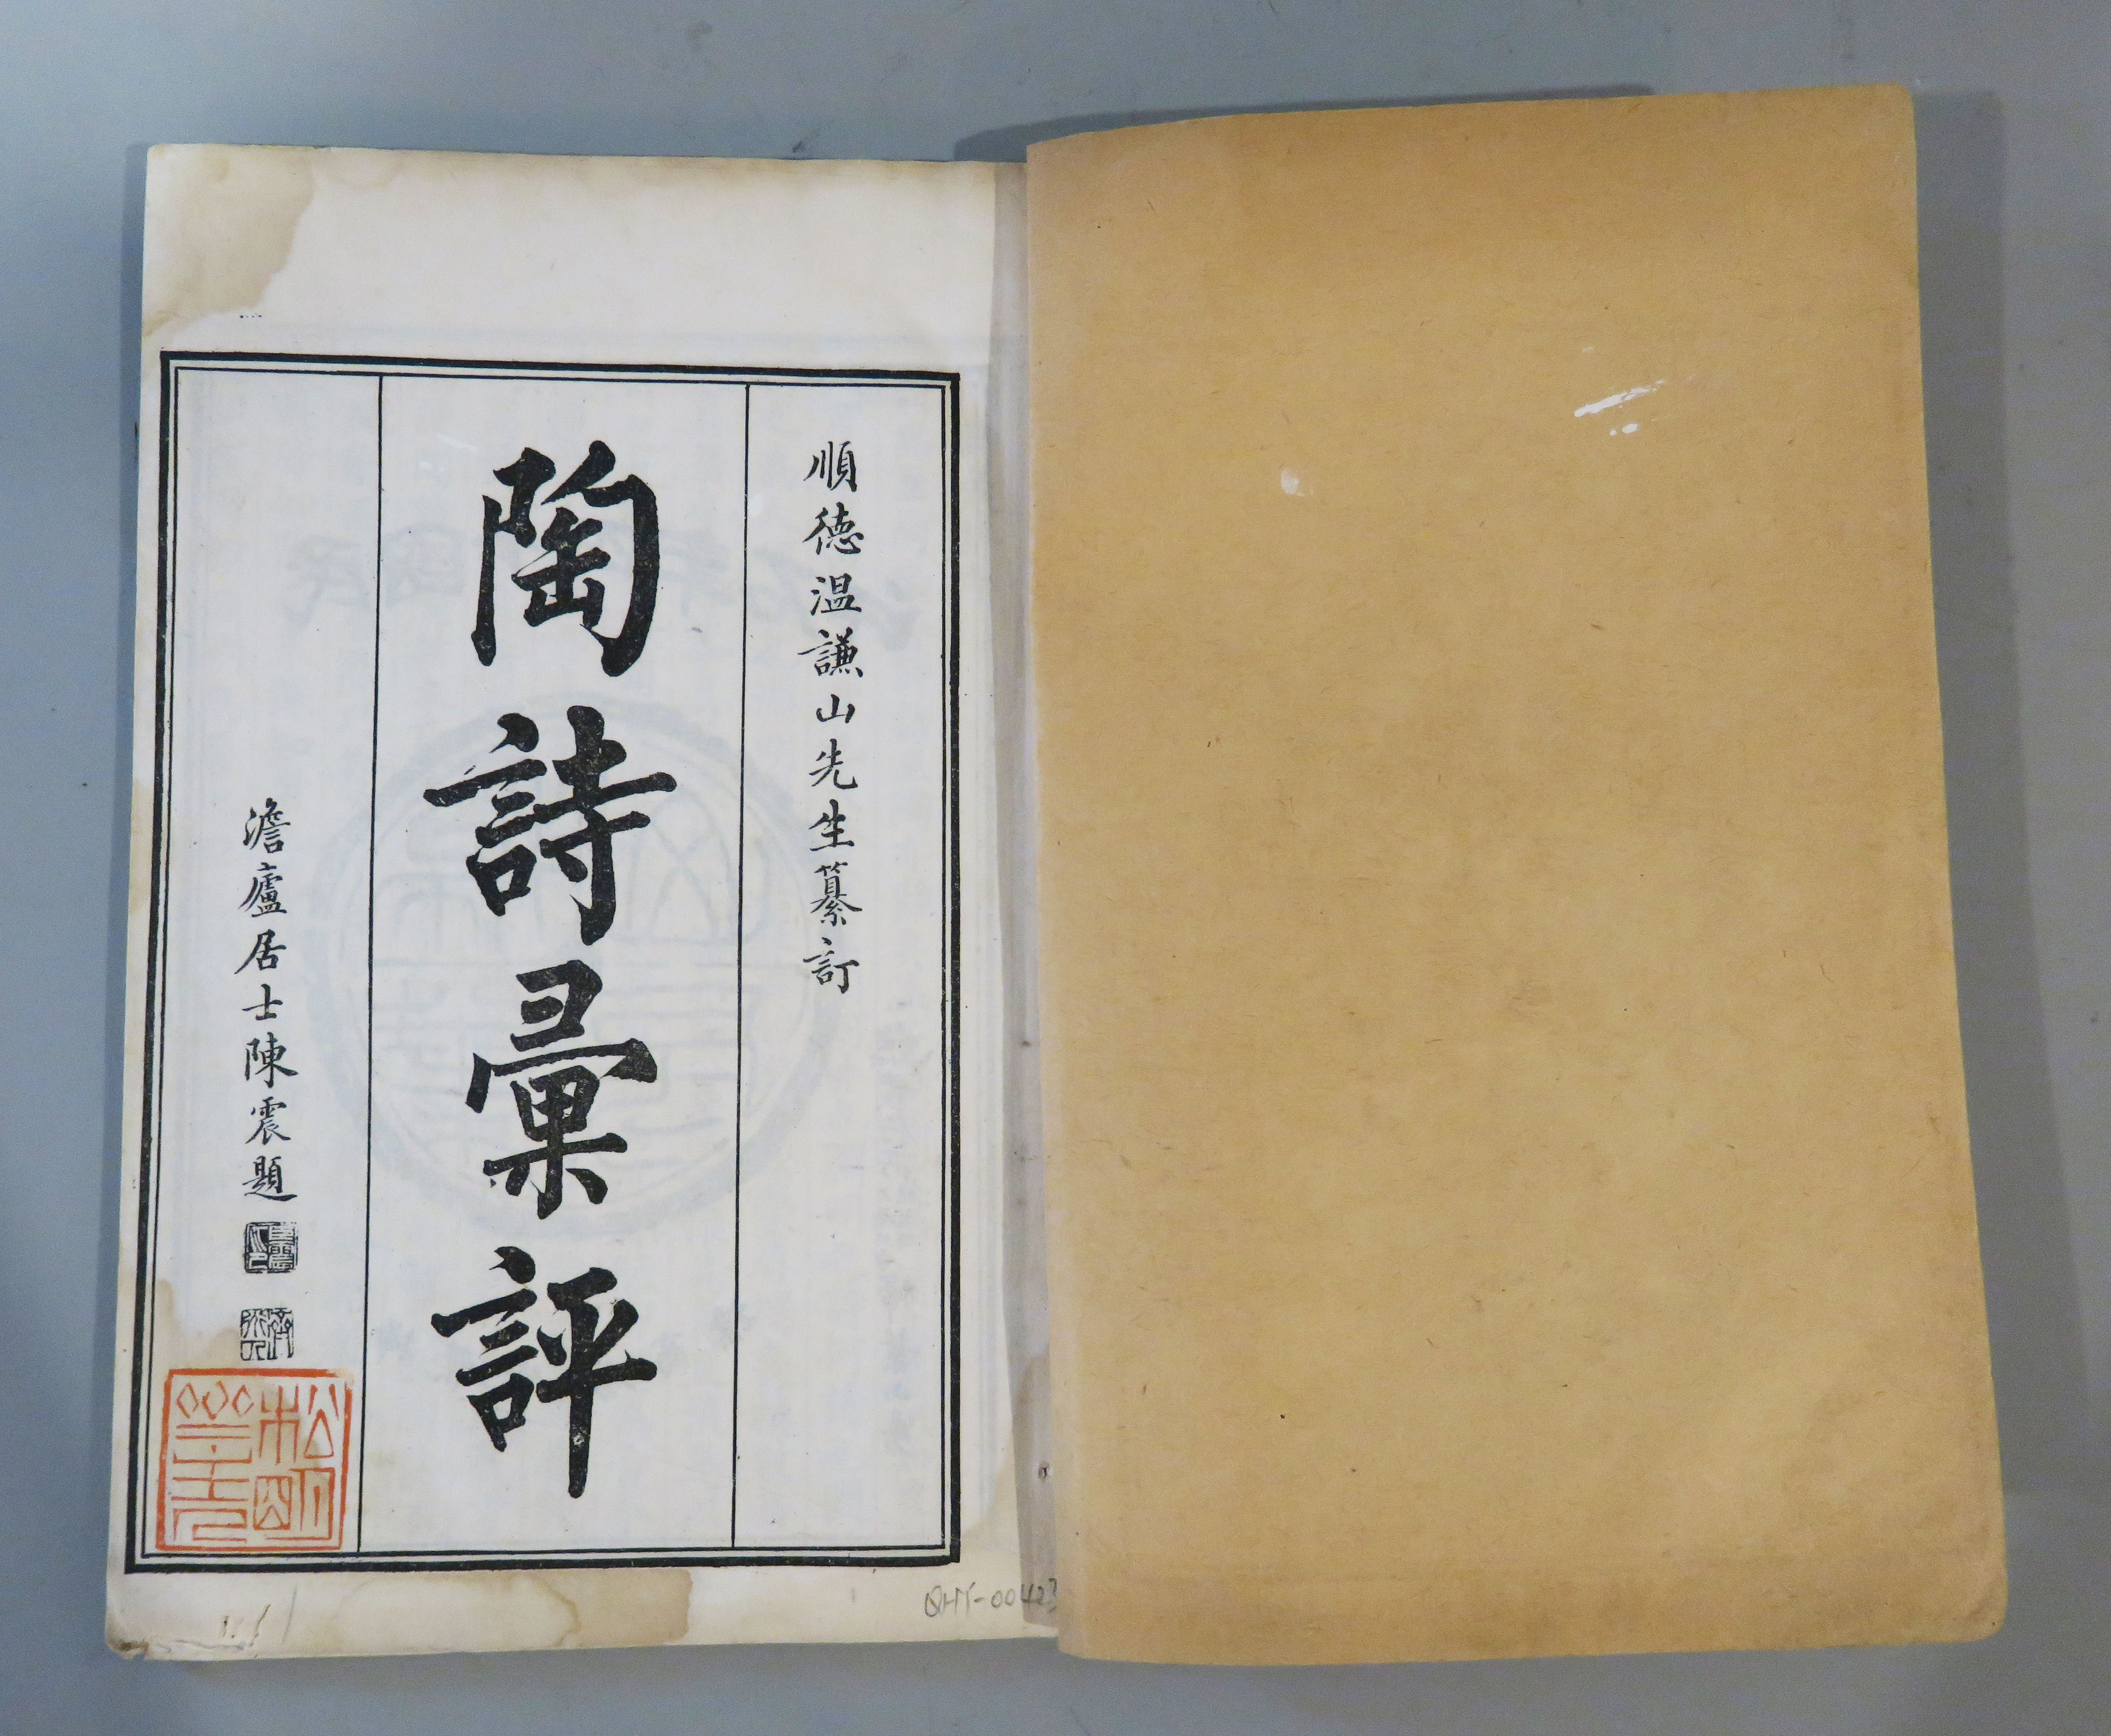 順德溫謙山先生纂訂
陶詩彙評
澹廬居士陳震題
QHT-00423